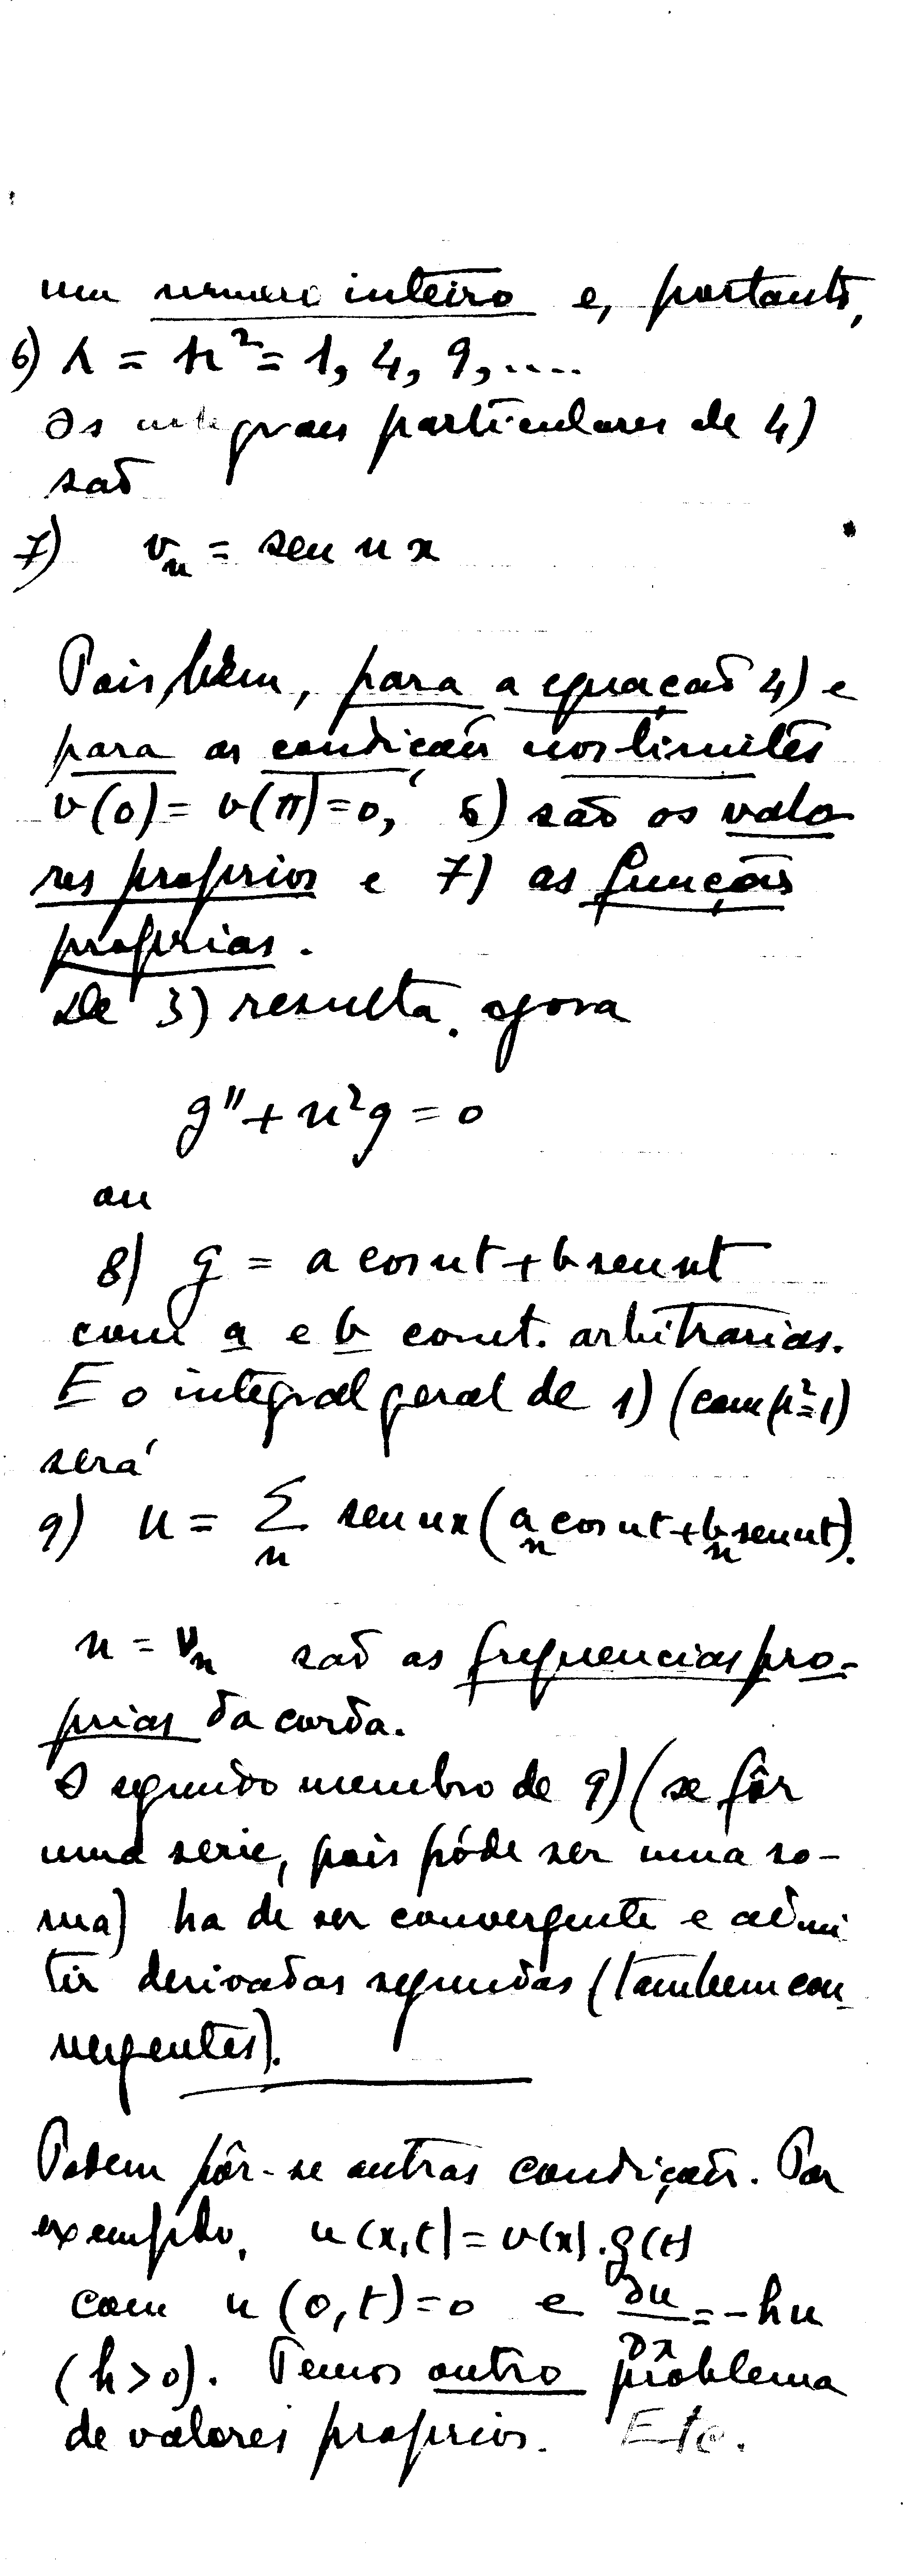 um numero inteiro e, portanto,
6) λ = n² = 1, 4, 9, ....
Os integrais particulares de 4)
são
7) vₙ = sen n x
Pois bem, para a equação 4) e
para as condições nos limites
v(0) = v(π) = 0, 6) são os valo
res proprios e 7) as funções
proprias.
De 3) resulta agora
g'' + n²g = 0
ou
8) g = a cos nt + b sen nt
com a e b const. arbitrarias.
E o integral geral de 1) (com μ² = 1)
será
9) u = Σₙ sen nx (aₙ cos nt + bₙ sen nt).
n = νₙ são as frequencias pro-
prias da corda.
O segundo membro de 9) (se fôr
uma serie, pois póde ser uma so-
ma) ha de ser convergente e admi
tir derivadas segundas (tambem con
vergentes).
Podem pôr-se outras condições. Por
exemplo, u(x,t) = v(x).g(t)
com u(0,t) = 0 e ∂u/∂x = -hu
(h>0). Temos outro problema
de valores proprios. Etc.